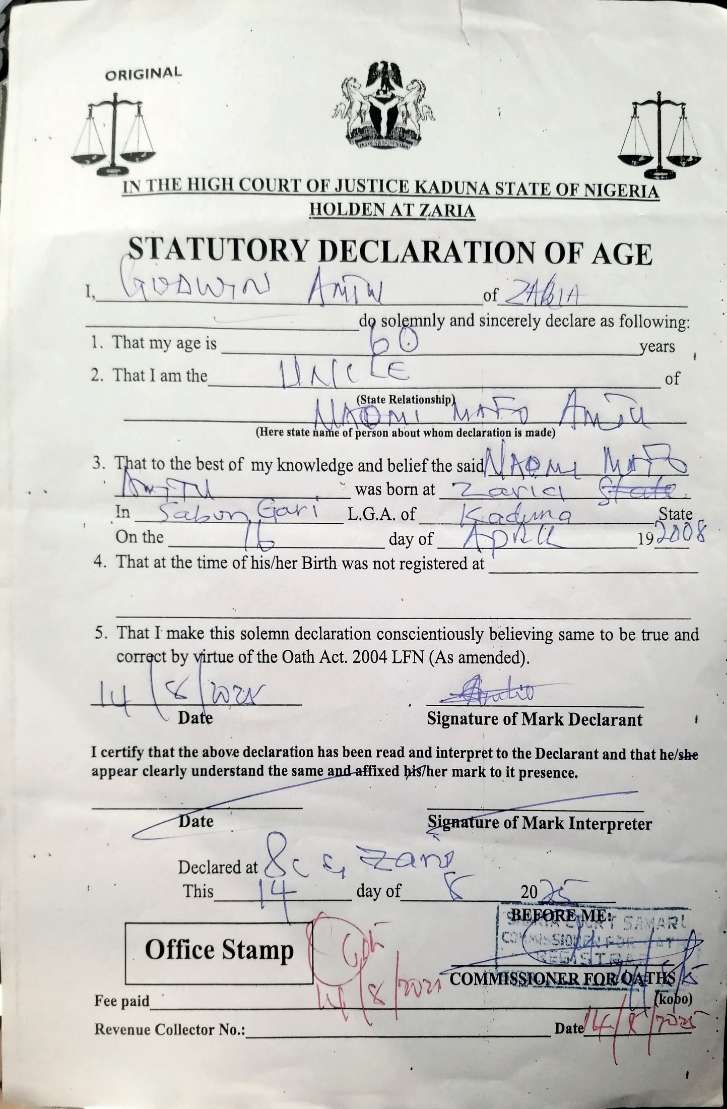 ORIGINAL
IN THE HIGH COURT OF JUSTICE KADUNA STATE OF NIGERIA
HOLDEN AT ZARIA
STATUTORY DECLARATION OF AGE
I, GODWIN of ZARIA
do solemnly and sincerely declare as following:
1. That my age is 60 years
2. That I am the UNCLE of
(State Relationship)
NAOMI
(Here state name of person about whom declaration is made)
3. That to the best of my knowledge and belief the said NAOMI
was born at Zaria State
In Sabon Gari L.G.A. of Kaduna State
On the 16 day of April 19 2008
4. That at the time of his/her Birth was not registered at
5. That I make this solemn declaration conscientiously believing same to be true and
correct by virtue of the Oath Act. 2004 LFN (As amended).
14/8/2025
Date Signature of Mark Declarant
I certify that the above declaration has been read and interpret to the Declarant and that he/she
appear clearly understand the same and affixed his/her mark to it presence.
Date Signature of Mark Interpreter
Declared at
This 14 day of 8 20 25
BEFORE ME:
COMMISSIONER FOR
REGISTRAR
Office Stamp
COMMISSIONER FOR OATHS
Fee paid (kobo)
Revenue Collector No.: Date 14/8/2025